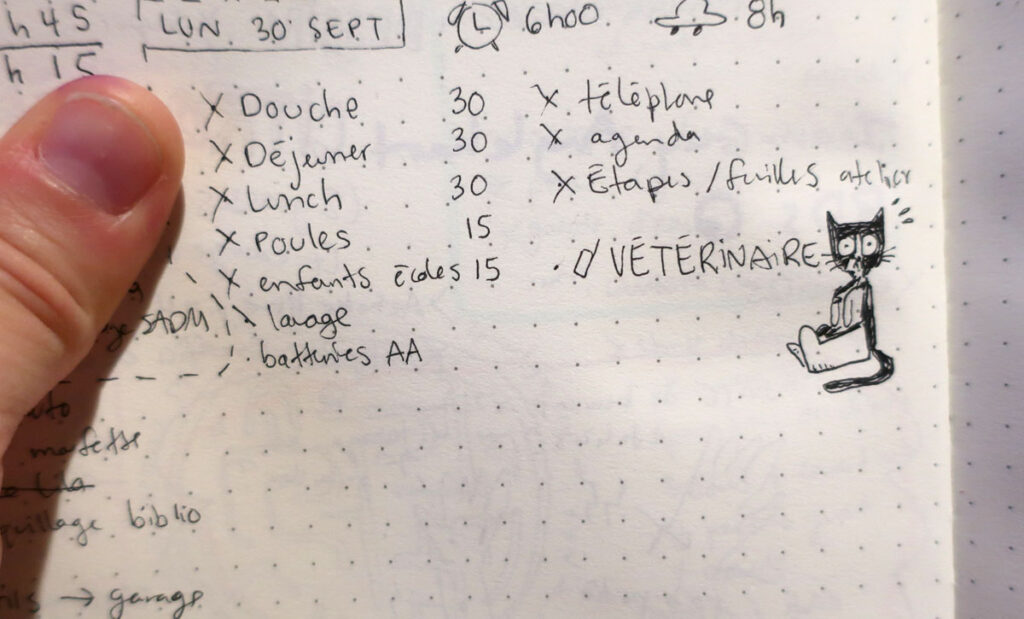 h 45
h 15
LUN. 30 SEPT
6h00
8h
× Douche 30
× Déjeuner 30
× Lunch 30
× Poules 15
× enfants écoles 15
lavage
batteries AA
× téléphone
× agenda
× Étapes / feuilles atelier
VÉTÉRINAIRE
SADM
moufette
biblio
→ garage